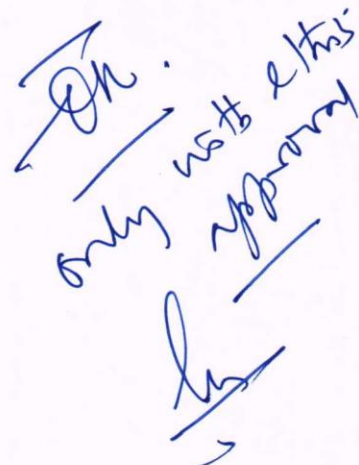 OK.
only with ethics
approval